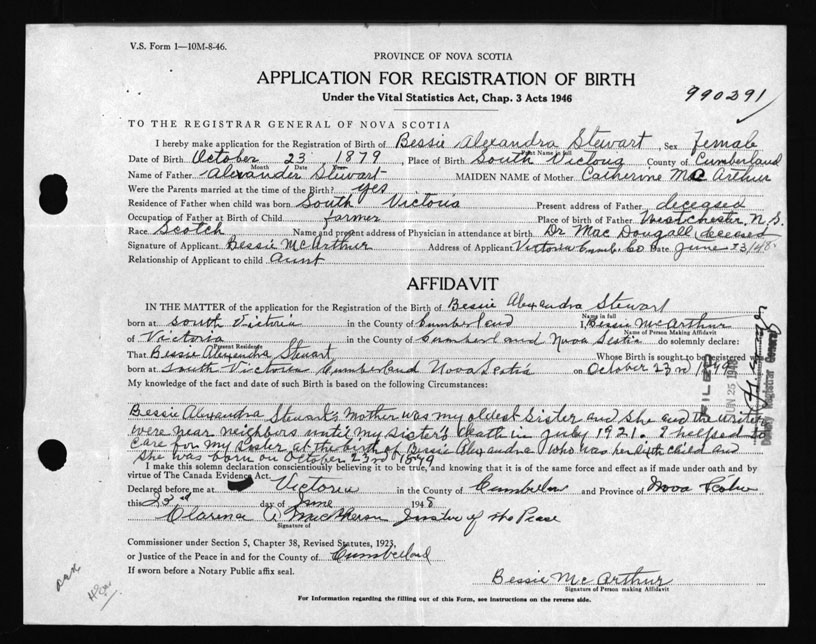 V.S. Form 1—10M-8-46.
PROVINCE OF NOVA SCOTIA
APPLICATION FOR REGISTRATION OF BIRTH
Under the Vital Statistics Act, Chap. 3 Acts 1946
990291
TO THE REGISTRAR GENERAL OF NOVA SCOTIA
I hereby make application for the Registration of Birth of Bessie Alexandra Stewart, Sex female
Print Name in full
Date of Birth October 23 1879, Place of Birth South Victoria County of Cumberland
Month Date Year
Name of Father Alexander Stewart MAIDEN NAME of Mother Catherine Mac Arthur
Were the Parents married at the time of the Birth? yes
Residence of Father when child was born South Victoria Present address of Father deceased
Occupation of Father at Birth of Child farmer Place of birth of Father Westchester, N.S.
Race Scotch Name and present address of Physician in attendance at birth Dr Mac Dougall deceased
Signature of Applicant Bessie McArthur Address of Applicant Victoria Cumb. Co Date June 23/48
Relationship of Applicant to child aunt
AFFIDAVIT
IN THE MATTER of the application for the Registration of the Birth of Bessie Alexandra Stewart
Name in full
born at South Victoria in the County of Cumberland I, Bessie McArthur
Name of Person Making Affidavit
of Victoria in the County of Cumberland Nova Scotia do solemnly declare:
Present Residence
That Bessie Alexandra Stewart Whose Birth is sought to be registered was
born at South Victoria Cumberland Nova Scotia on October 23rd 1879
My knowledge of the fact and date of such Birth is based on the following Circumstances:
Bessie Alexandra Stewart's Mother was my oldest Sister and she and the writer
were near neighbors until my sister's death in July 1921. I helped to
care for my sister at the birth of Bessie Alexandra who was her child and
she was born on October 23rd 1879
I make this solemn declaration conscientiously believing it to be true, and knowing that it is of the same force and effect as if made under oath and by
virtue of The Canada Evidence Act.
Declared before me at Victoria in the County of Cumberland and Province of Nova Scotia
this 23rd day of June 1948
Clarence A. Justice of the Peace
Signature of
Commissioner under Section 5, Chapter 38, Revised Statutes, 1923,
or Justice of the Peace in and for the County of Cumberland
If sworn before a Notary Public affix seal.
Bessie McArthur
Signature of Person making Affidavit
For Information regarding the filling out of this Form, see instructions on the reverse side.
FILED
JUN 25 1948
Deputy Registrar General